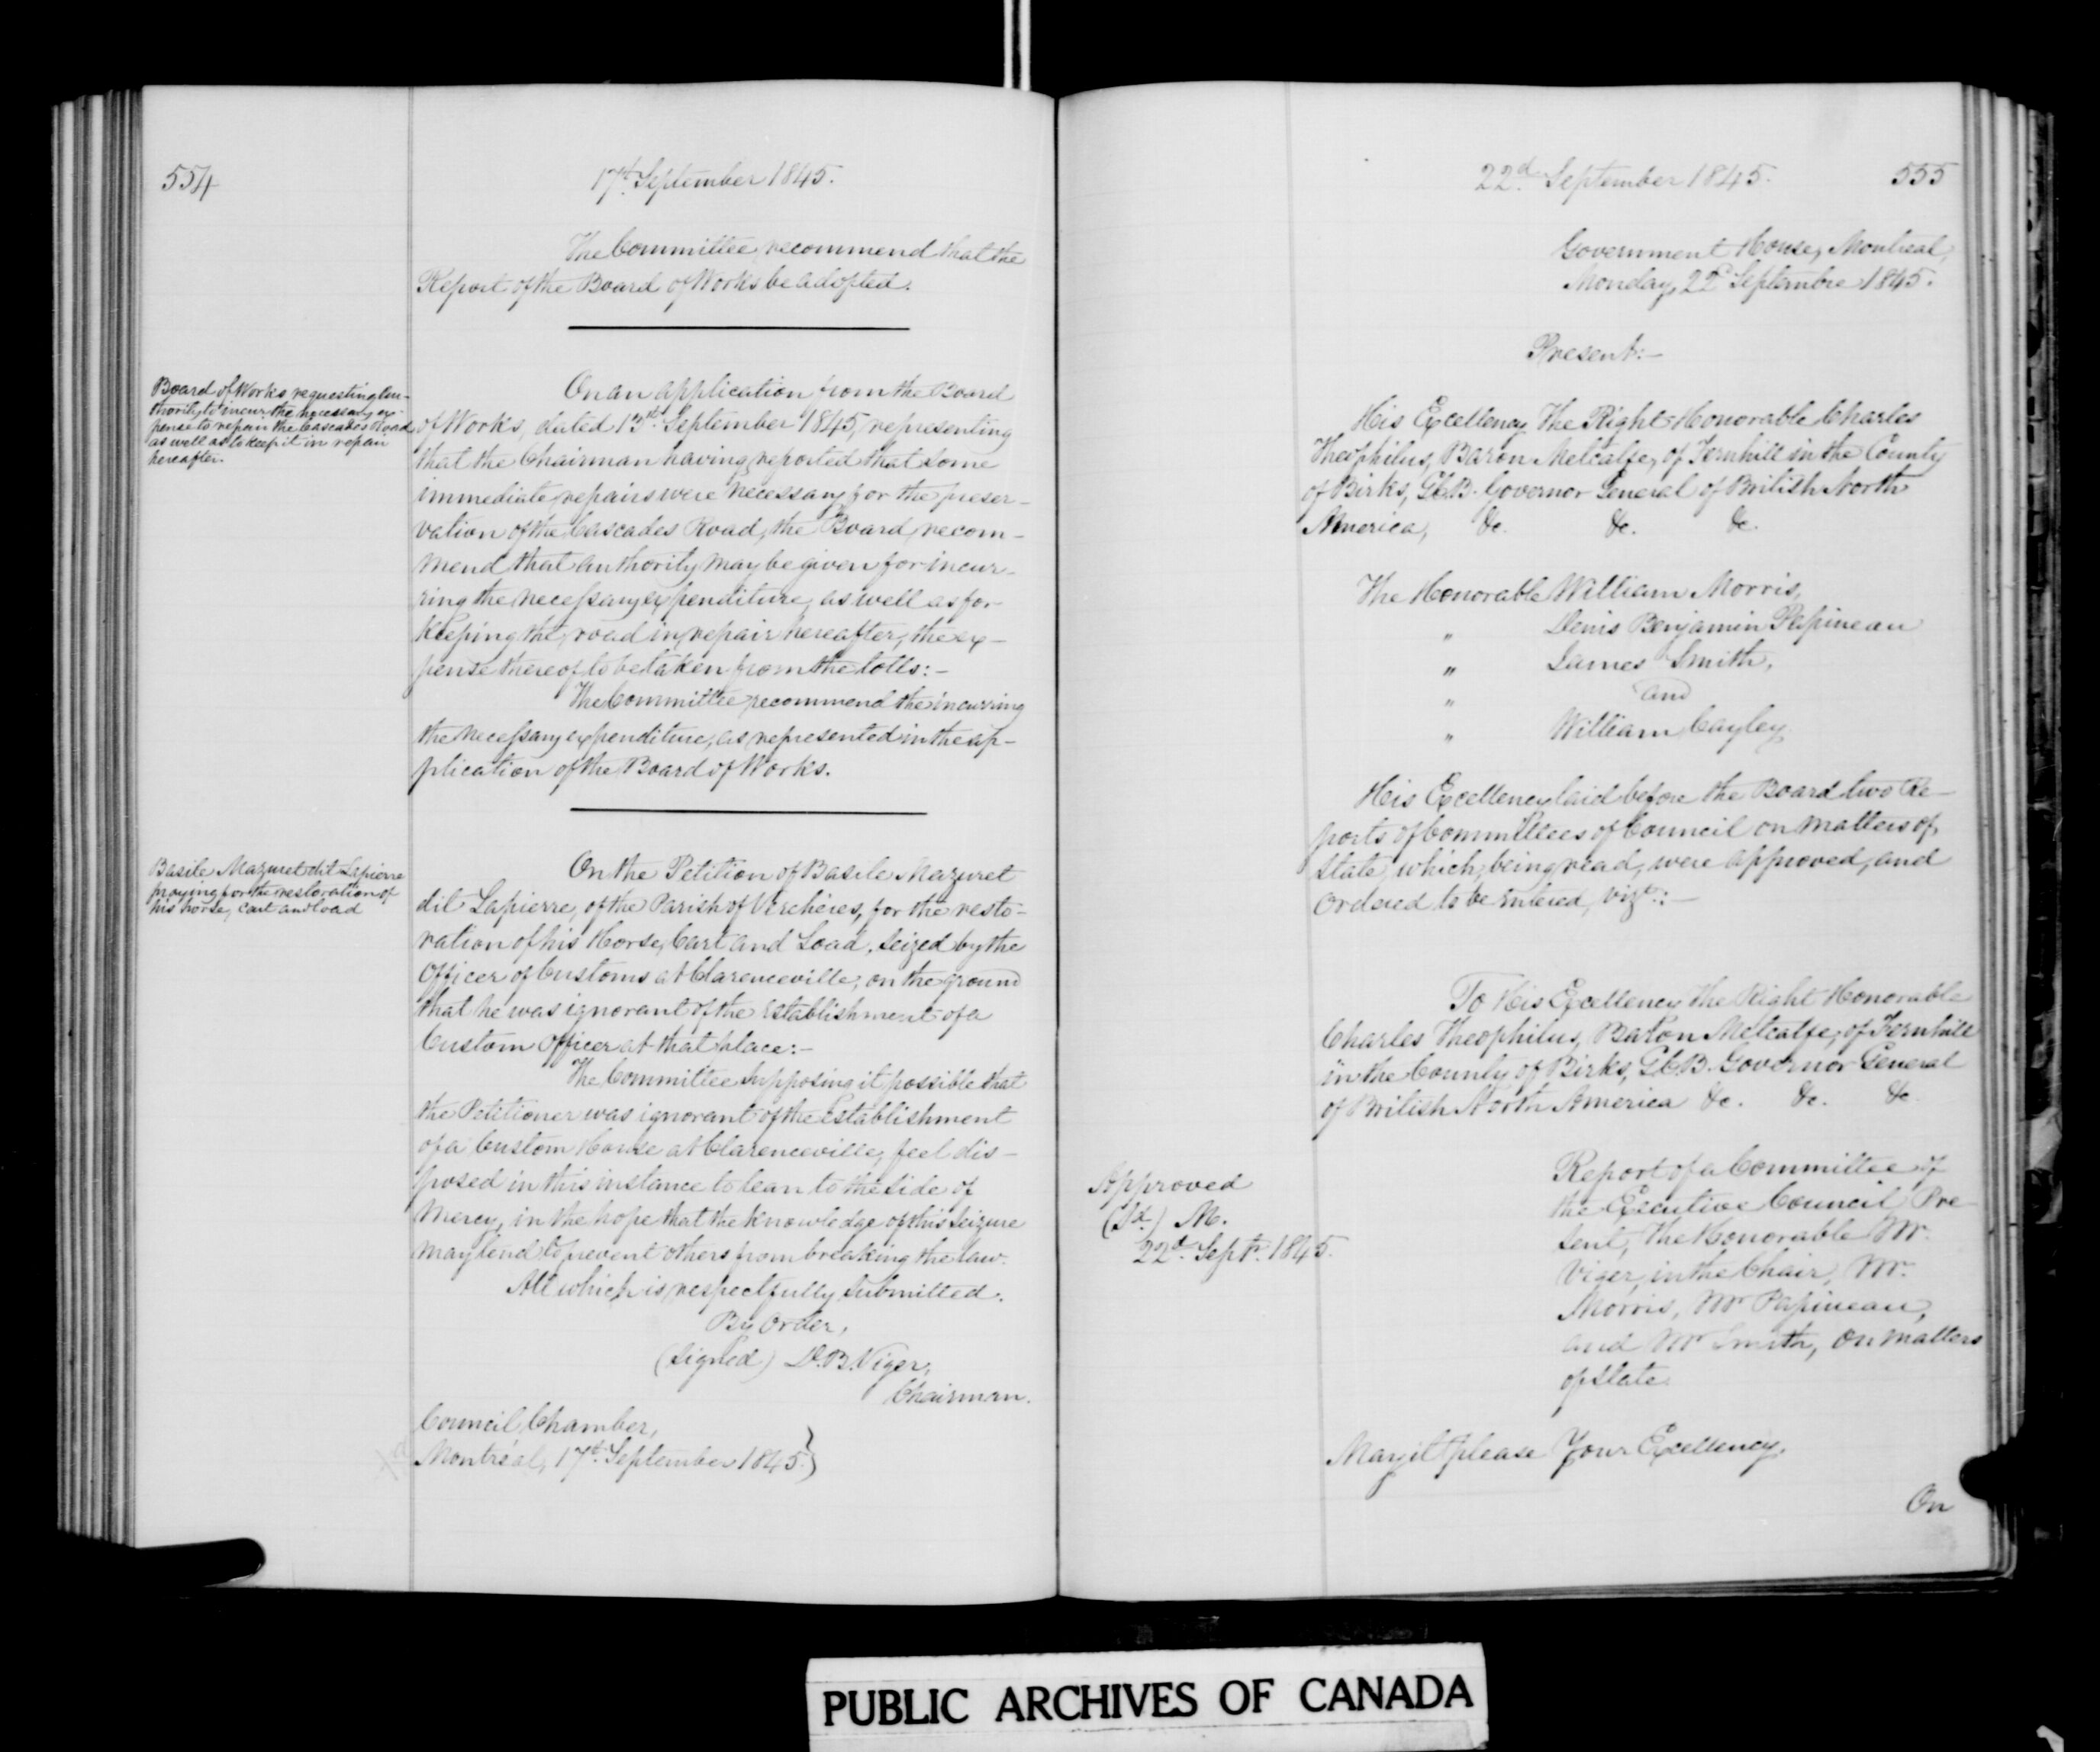 554
17th September 1845.
The Committee recommend that the
Report of the Board of Works be adopted.
Board of Works requesting au-
thority to incur the necessary ex-
pense to repair the Cascades Road
as well as to keep it in repair
hereafter.
On an application from the Board
of Works, dated 13th September 1845, representing
that the Chairman having reported that some
immediate repairs were necessary for the preser-
vation of the Cascades Road, the Board recom-
mend that authority may be given for incur-
ring the necessary expenditure, as well as for
keeping the road in repair hereafter, the ex-
pense thereof to be taken from the tolls:-
The Committee recommend the incurring
the necessary expenditure, as represented in the ap-
plication of the Board of Works.
Basile Mazuret dit Lapierre
praying for the restoration of
his horse, cart and load
On the Petition of Basile Mazuret
dit Lapierre, of the Parish of Verchères, for the resto-
ration of his Horse, Cart and Load, seized by the
Officer of Customs at Clarenceville, on the ground
that he was ignorant of the Establishment of a
Custom Officer at that place:-
The Committee supposing it possible that
the Petitioner was ignorant of the Establishment
of a Custom House at Clarenceville, feel dis-
posed in this instance to lean to the side of
Mercy, in the hope that the knowledge of this seizure
may tend to prevent others from breaking the law.
All which is respectfully submitted.
By Order,
(signed) D. B. Viger,
Chairman.
Council Chamber,
Montréal, 17th September 1845.}
22d September 1845.
555
Government House, Montreal,
Monday, 22d Septembre 1845.
Present:-
His Excellency The Right Honorable Charles
Theophilus, Baron Metcalfe, of Fernhill in the County
of Birks, G.C.B. Governor General of British North
America, &c. &c. &c.
The Honorable William Morris,
" Denis Benjamin Papineau
" James Smith,
" and
" William Cayley
His Excellency laid before the Board two Re-
ports of Committees of Council on matters of
State, which, being read, were approved, and
Ordered to be entered, vizt:-
To His Excellency the Right Honorable
Charles Theophilus, Baron Metcalfe, of Fernhill
in the County of Birks, G.C.B. Governor General
of British North America &c. &c. &c.
Approved
(Sd) M.
22d Septr. 1845.
Report of a Committee of
the Executive Council Pre-
sent, The Honorable Mr.
Viger, in the Chair, Mr.
Morris, Mr Papineau,
and Mr Smith, on matters
of state
May it please Your Excellency,
On
PUBLIC ARCHIVES OF CANADA